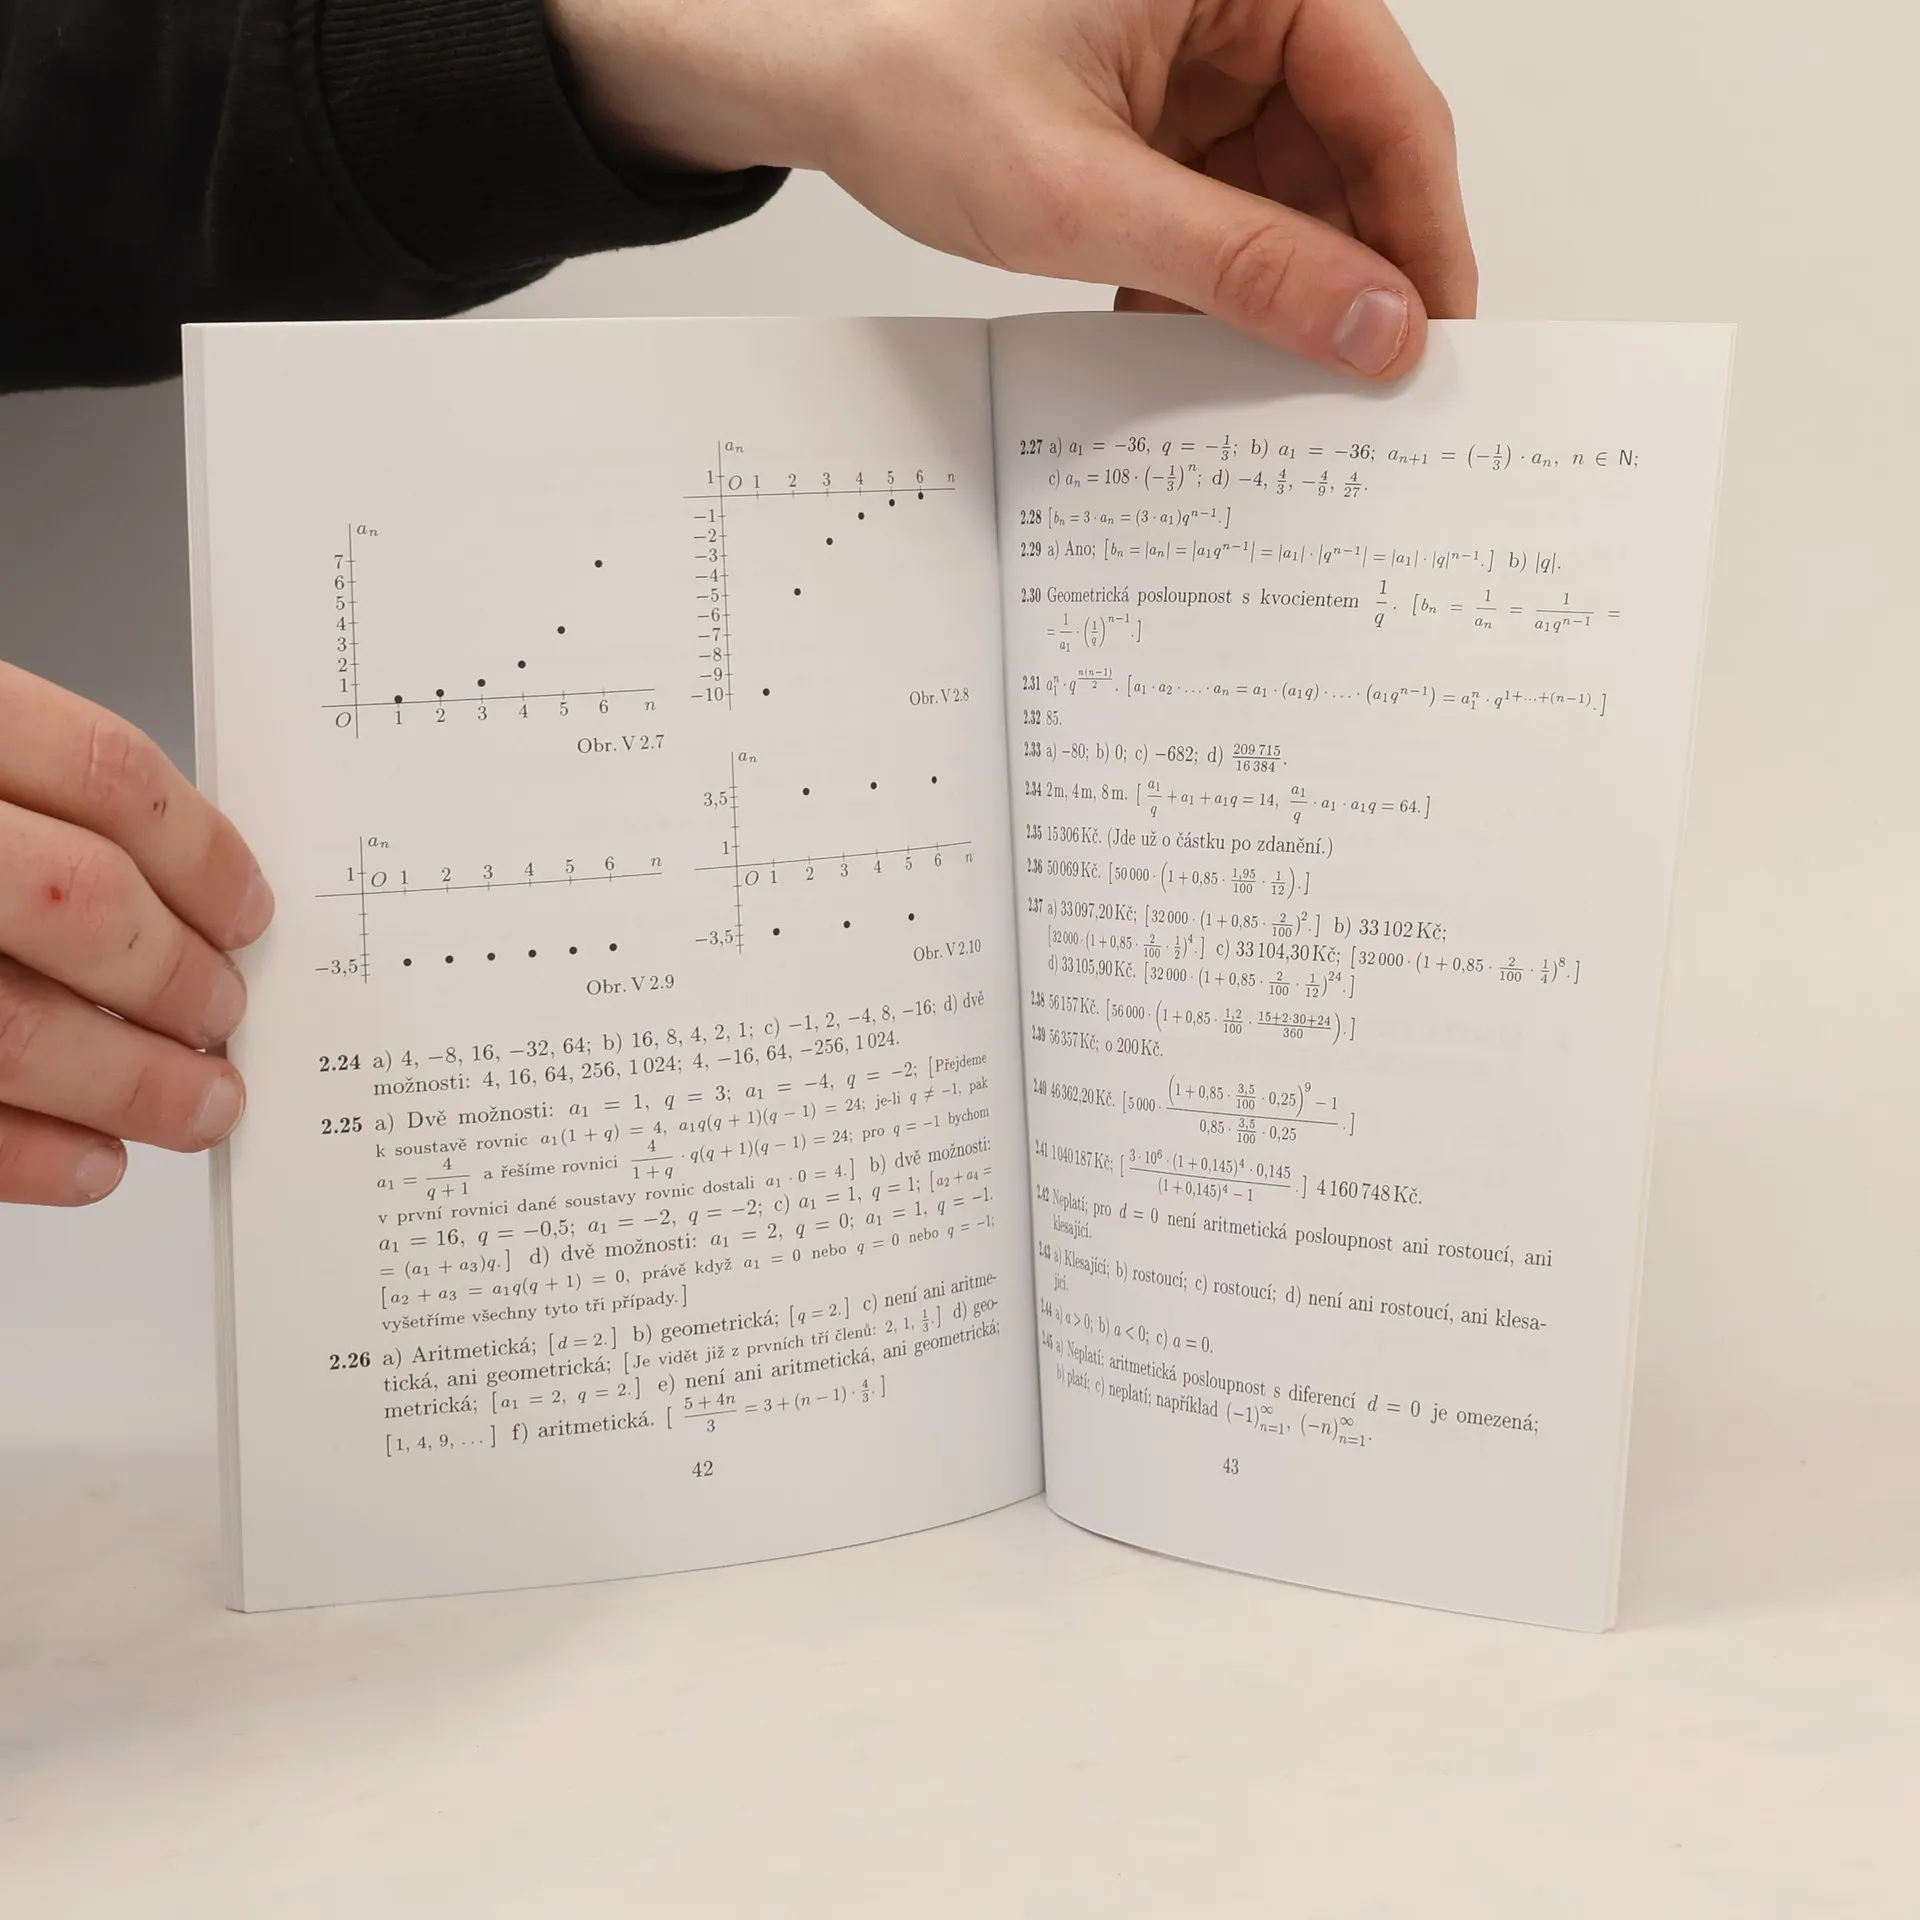 a_n
7
6
5
4
3
2
1
O 1 2 3 4 5 6 n
Obr. V 2.7
a_n
1
O 1 2 3 4 5 6 n
−1
−2
−3
−4
−5
−6
−7
−8
−9
−10
Obr. V 2.8
a_n
1
O 1 2 3 4 5 6 n
−3,5
Obr. V 2.9
a_n
3,5
1
O 1 2 3 4 5 6 n
−3,5
Obr. V 2.10
2.24 a) 4, −8, 16, −32, 64; b) 16, 8, 4, 2, 1; c) −1, 2, −4, 8, −16; d) dvě
možnosti: 4, 16, 64, 256, 1 024; 4, −16, 64, −256, 1 024.
2.25 a) Dvě možnosti: a₁ = 1, q = 3; a₁ = −4, q = −2; [Přejdeme
k soustavě rovnic a₁(1 + q) = 4, a₁q(q + 1)(q − 1) = 24; je-li q ≠ −1, pak
a₁ = 4/(q + 1) a řešíme rovnici 4/(1 + q) · q(q + 1)(q − 1) = 24; pro q = −1 bychom
v první rovnici dané soustavy rovnic dostali a₁ · 0 = 4.] b) dvě možnosti:
a₁ = 16, q = −0,5; a₁ = −2, q = −2; c) a₁ = 1, q = 1; [a₂ + a₄ =
= (a₁ + a₃)q.] d) dvě možnosti: a₁ = 2, q = 0; a₁ = 1, q = −1.
[a₂ + a₃ = a₁q(q + 1) = 0, právě když a₁ = 0 nebo q = 0 nebo q = −1;
vyšetříme všechny tyto tři případy.]
2.26 a) Aritmetická; [d = 2.] b) geometrická; [q = 2.] c) není ani aritme-
tická, ani geometrická; [Je vidět již z prvních tří členů: 2, 1, 1/3.] d) geo-
metrická; [a₁ = 2, q = 2.] e) není ani aritmetická, ani geometrická;
[1, 4, 9, …] f) aritmetická. [(5 + 4n)/3 = 3 + (n − 1) · 4/3.]
42
2.27 a) a₁ = −36, q = −1/3; b) a₁ = −36; aₙ₊₁ = (−1/3) · aₙ, n ∈ N;
c) aₙ = 108 · (−1/3)ⁿ; d) −4, 4/3, −4/9, 4/27.
2.28 [bₙ = 3 · aₙ = (3 · a₁)qⁿ⁻¹.]
2.29 a) Ano; [bₙ = |aₙ| = |a₁qⁿ⁻¹| = |a₁| · |qⁿ⁻¹| = |a₁| · |q|ⁿ⁻¹.] b) |q|.
2.30 Geometrická posloupnost s kvocientem 1/q. [bₙ = 1/aₙ = 1/(a₁qⁿ⁻¹) =
= 1/a₁ · (1/q)ⁿ⁻¹.]
2.31 a₁ⁿ · q^(n(n−1)/2). [a₁ · a₂ · … · aₙ = a₁ · (a₁q) · … · (a₁qⁿ⁻¹) = a₁ⁿ · q^(1+…+(n−1)).]
2.32 85.
2.33 a) −80; b) 0; c) −682; d) 209 715/16 384.
2.34 2 m, 4 m, 8 m. [a₁/q + a₁ + a₁q = 14, a₁/q · a₁ · a₁q = 64.]
2.35 15 306 Kč. (Jde už o částku po zdanění.)
2.36 50 069 Kč. [50 000 · (1 + 0,85 · 1,95/100 · 1/12).]
2.37 a) 33 097,20 Kč; [32 000 · (1 + 0,85 · 2/100)².] b) 33 102 Kč;
[32 000 · (1 + 0,85 · 2/100 · 1/2)⁴.] c) 33 104,30 Kč; [32 000 · (1 + 0,85 · 2/100 · 1/4)⁸.]
d) 33 105,90 Kč. [32 000 · (1 + 0,85 · 2/100 · 1/12)²⁴.]
2.38 56 157 Kč. [56 000 · (1 + 0,85 · 1,2/100 · (15+2·30+24)/360).]
2.39 56 357 Kč; o 200 Kč.
2.40 46 362,20 Kč. [5 000 · ((1 + 0,85 · 3,5/100 · 0,25)⁹ − 1)/(0,85 · 3,5/100 · 0,25).]
2.41 1 040 187 Kč; [(3 · 10⁶ · (1 + 0,145)⁴ · 0,145)/((1 + 0,145)⁴ − 1).] 4 160 748 Kč.
2.42 Neplatí; pro d = 0 není aritmetická posloupnost ani rostoucí, ani
klesající.
2.43 a) Klesající; b) rostoucí; c) rostoucí; d) není ani rostoucí, ani klesa-
jící.
2.44 a) a > 0; b) a < 0; c) a = 0.
2.45 a) Neplatí; aritmetická posloupnost s diferencí d = 0 je omezená;
b) platí; c) neplatí; například (−1)ₙ₌₁^∞, (−n)ₙ₌₁^∞.
43